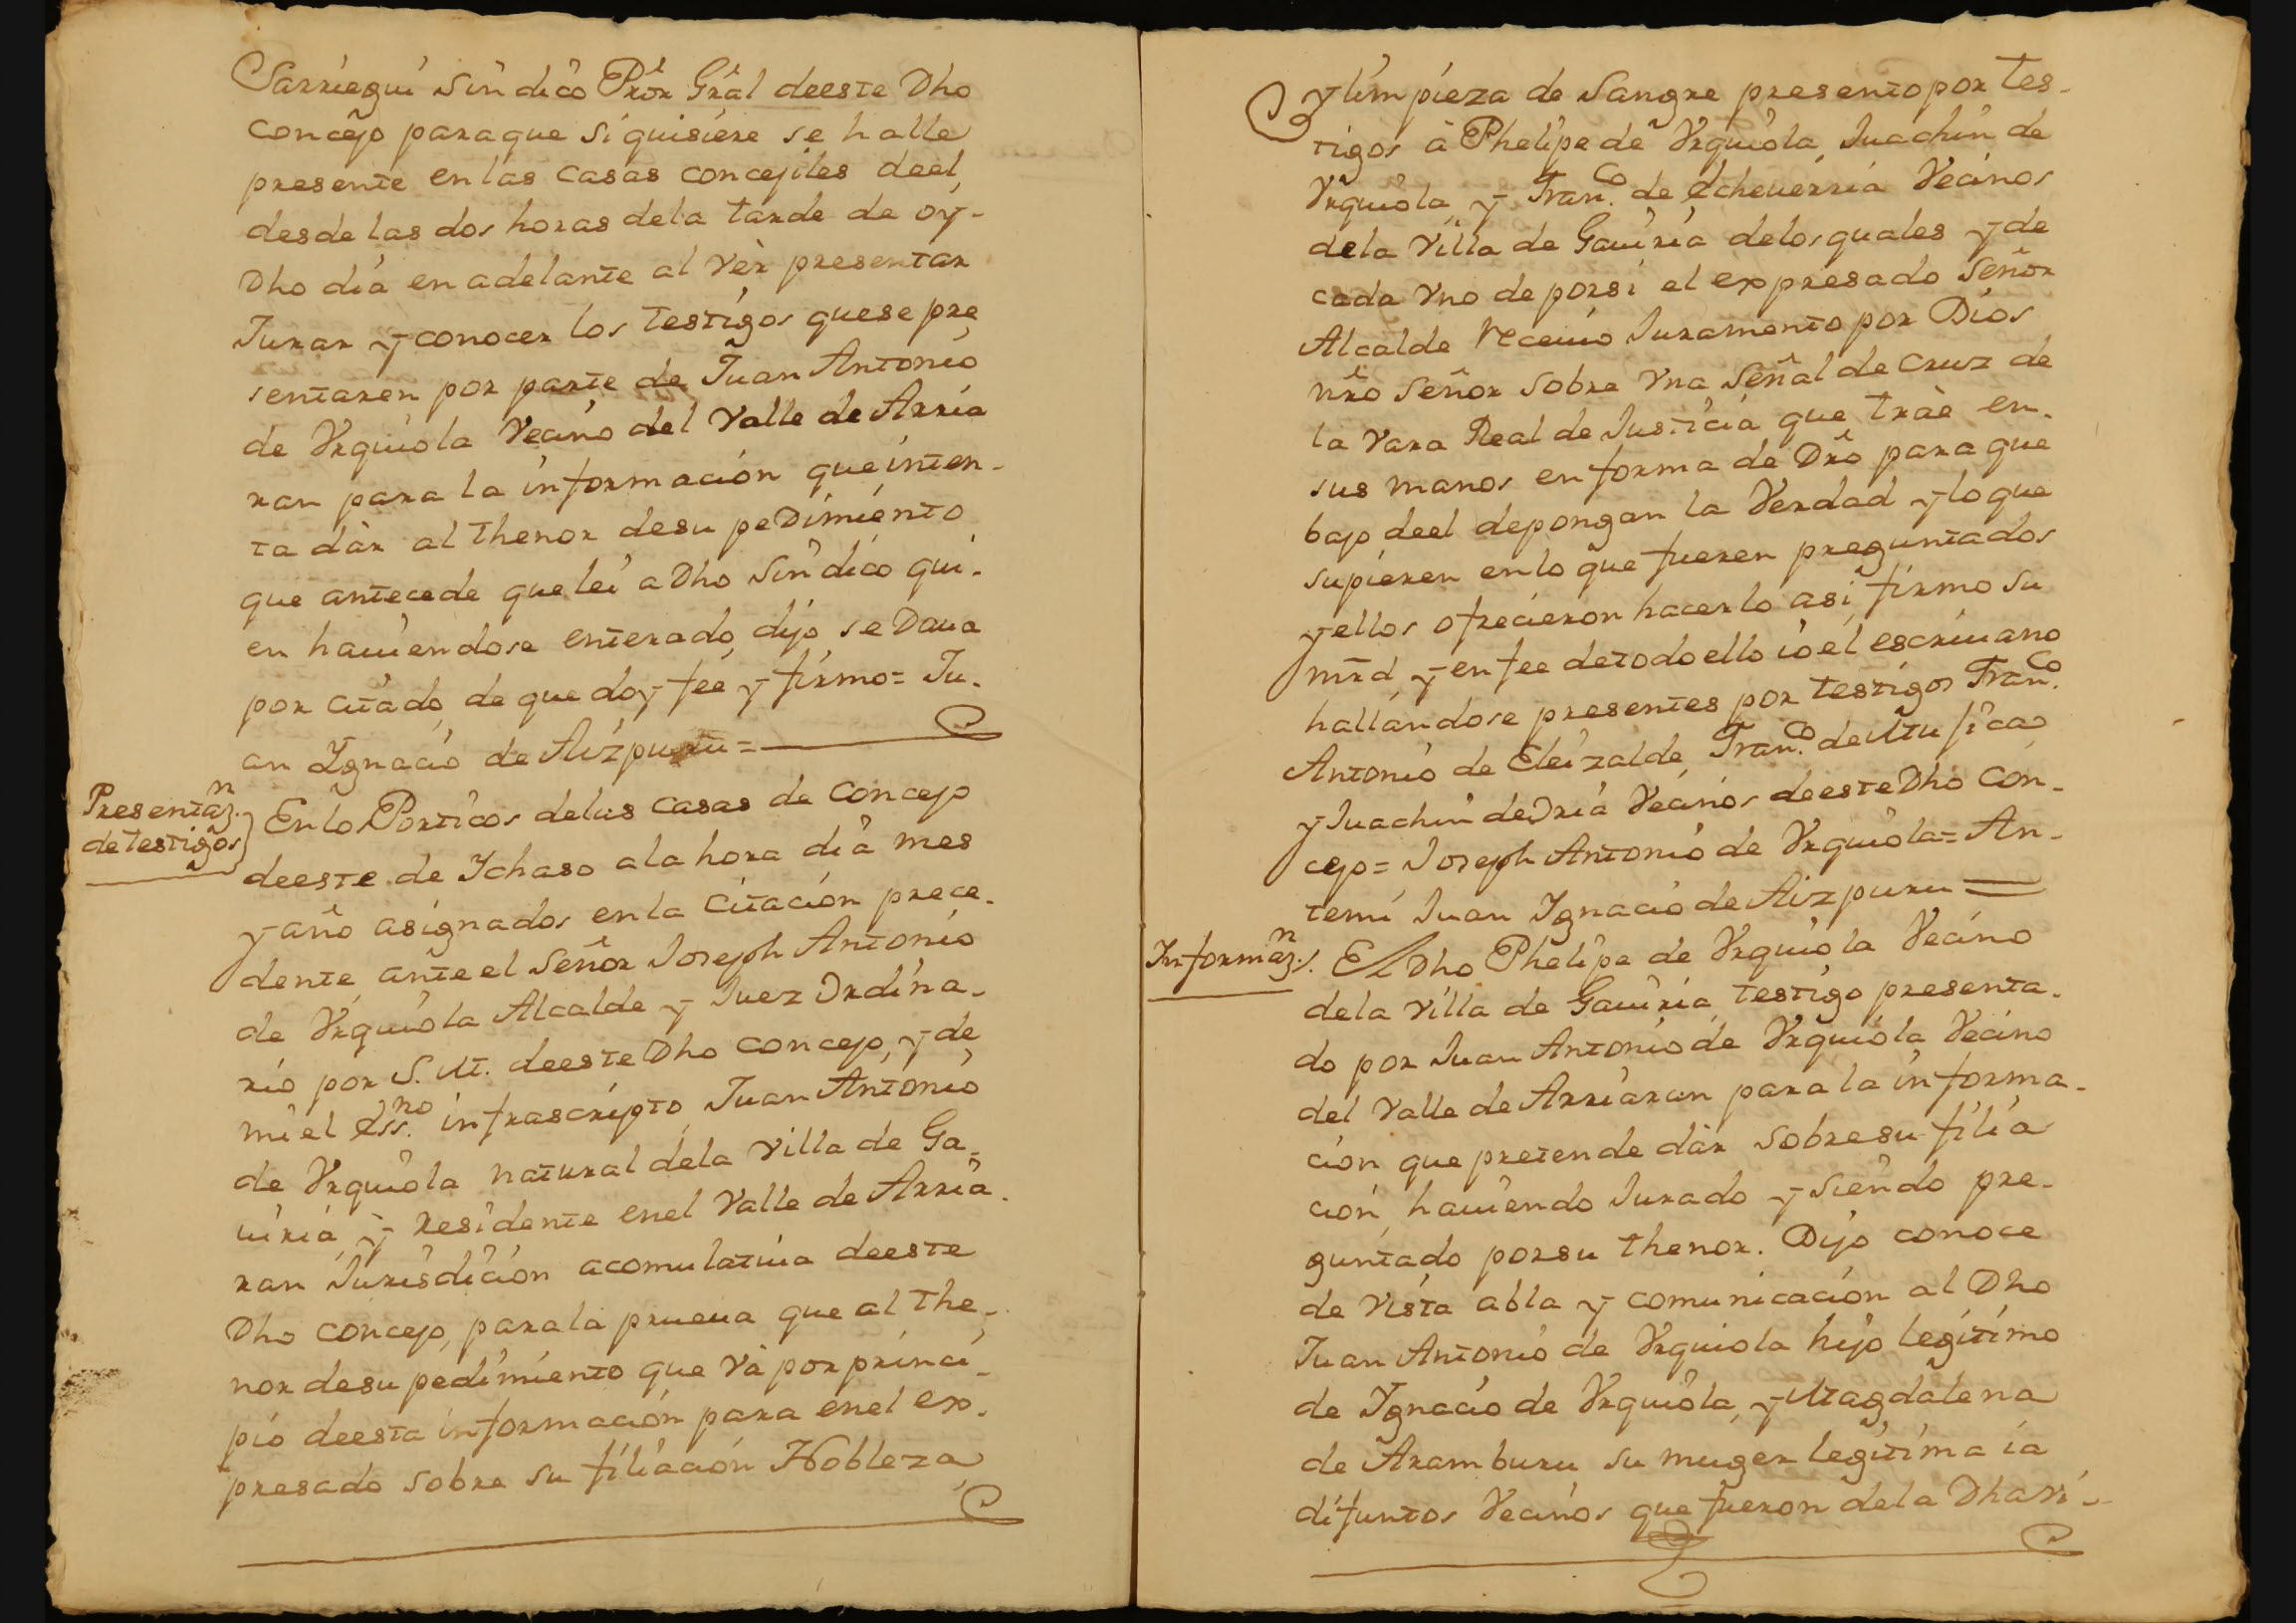 Sarriegui Sindico Pror Gral deeste Dho
concejo paraque siquisiere se halle
presente enlas casas concejiles deel
desde las dos horas dela tarde de oy
Dho dia en adelante al vèr presentar
Jurar y conocer los testigos quese pre
sentaren por parte de Juan Antonio
de Vrquiola Vecino del Valle de Arria
ran para la informacion que inten-
ta dàr al thenor desu peDimiento
que antecede que lei a Dho Sindico qui-
en hauiendose enterado, dijo se Daua
por citado, de que doy feè y firmo= Ju-
an Ygnacio de Aizpuru=
Presentazn.
de testigos
En los Porticos delas casas de concejo
deeste de Ichaso ala hora dia mes
y año asignados en la citacion prece-
dente, ante el Señor Joseph Antonio
de Vrquiola Alcalde y Juez Ordina-
rio por S. M. deeste Dho concejo, y de
mi el Essno. infrascripto, Juan Antonio
de Vrquiola natural dela villa de Ga-
uiria, y residente enel Valle de Arria-
ran Jurisdicion acomulatiua deeste
Dho concejo, parala prueua que al the-
nor desu pedimiento que và por princi-
pio deesta informacion para enel ex-
presado sobre su filiacion Nobleza,
y limpieza de Sangre presento por tes-
tigos à Phelipe de Vrquiola, Juachin de
Vrquiola, y Franco. de Echeuerria Vecinos
dela Villa de Gauiria delos quales y de
cada vno de porsi el expresado Señor
Alcalde receuio Juramento por Dios
nro Señor sobre vna Señal de cruz de
la vara Real de Justicia que tràe en-
sus manos en forma de Dro para que
bajo deel depongan la Verdad y lo que
supieren enlo que fueren preguntados
y ellos ofrecieron hacerlo asi, firmo su
mrd, y en fee detodo ello io el escriuano
hallandose presentes por testigos Franco.
Antonio de Eleizalde, Franco. de Musica
y Juachin de Oria Vecinos deeste Dho con-
cejo= Joseph Antonio de Vrquiola= An-
temi Juan Ygnacio de Aizpuru
Informazn.
El Dho Phelipe de Vrquiola Vecino
dela villa de Gauiria, testigo presenta-
do por Juan Antonio de Vrquiola Vecino
del Valle de Arriaran para la informa-
cion que pretende dàr sobresu filia
cion, hauiendo Jurado y siendo pre-
guntado porsu thenor. Dijo conoce
de vista abla y comunicacion al Dho
Juan Antonio de Vrquiola hijo legitimo
de Ygnacio de Vrquiola, y Magdalena
de Aramburu su muger legitima ia
difuntos Vecinos que fueron dela Dha vi-